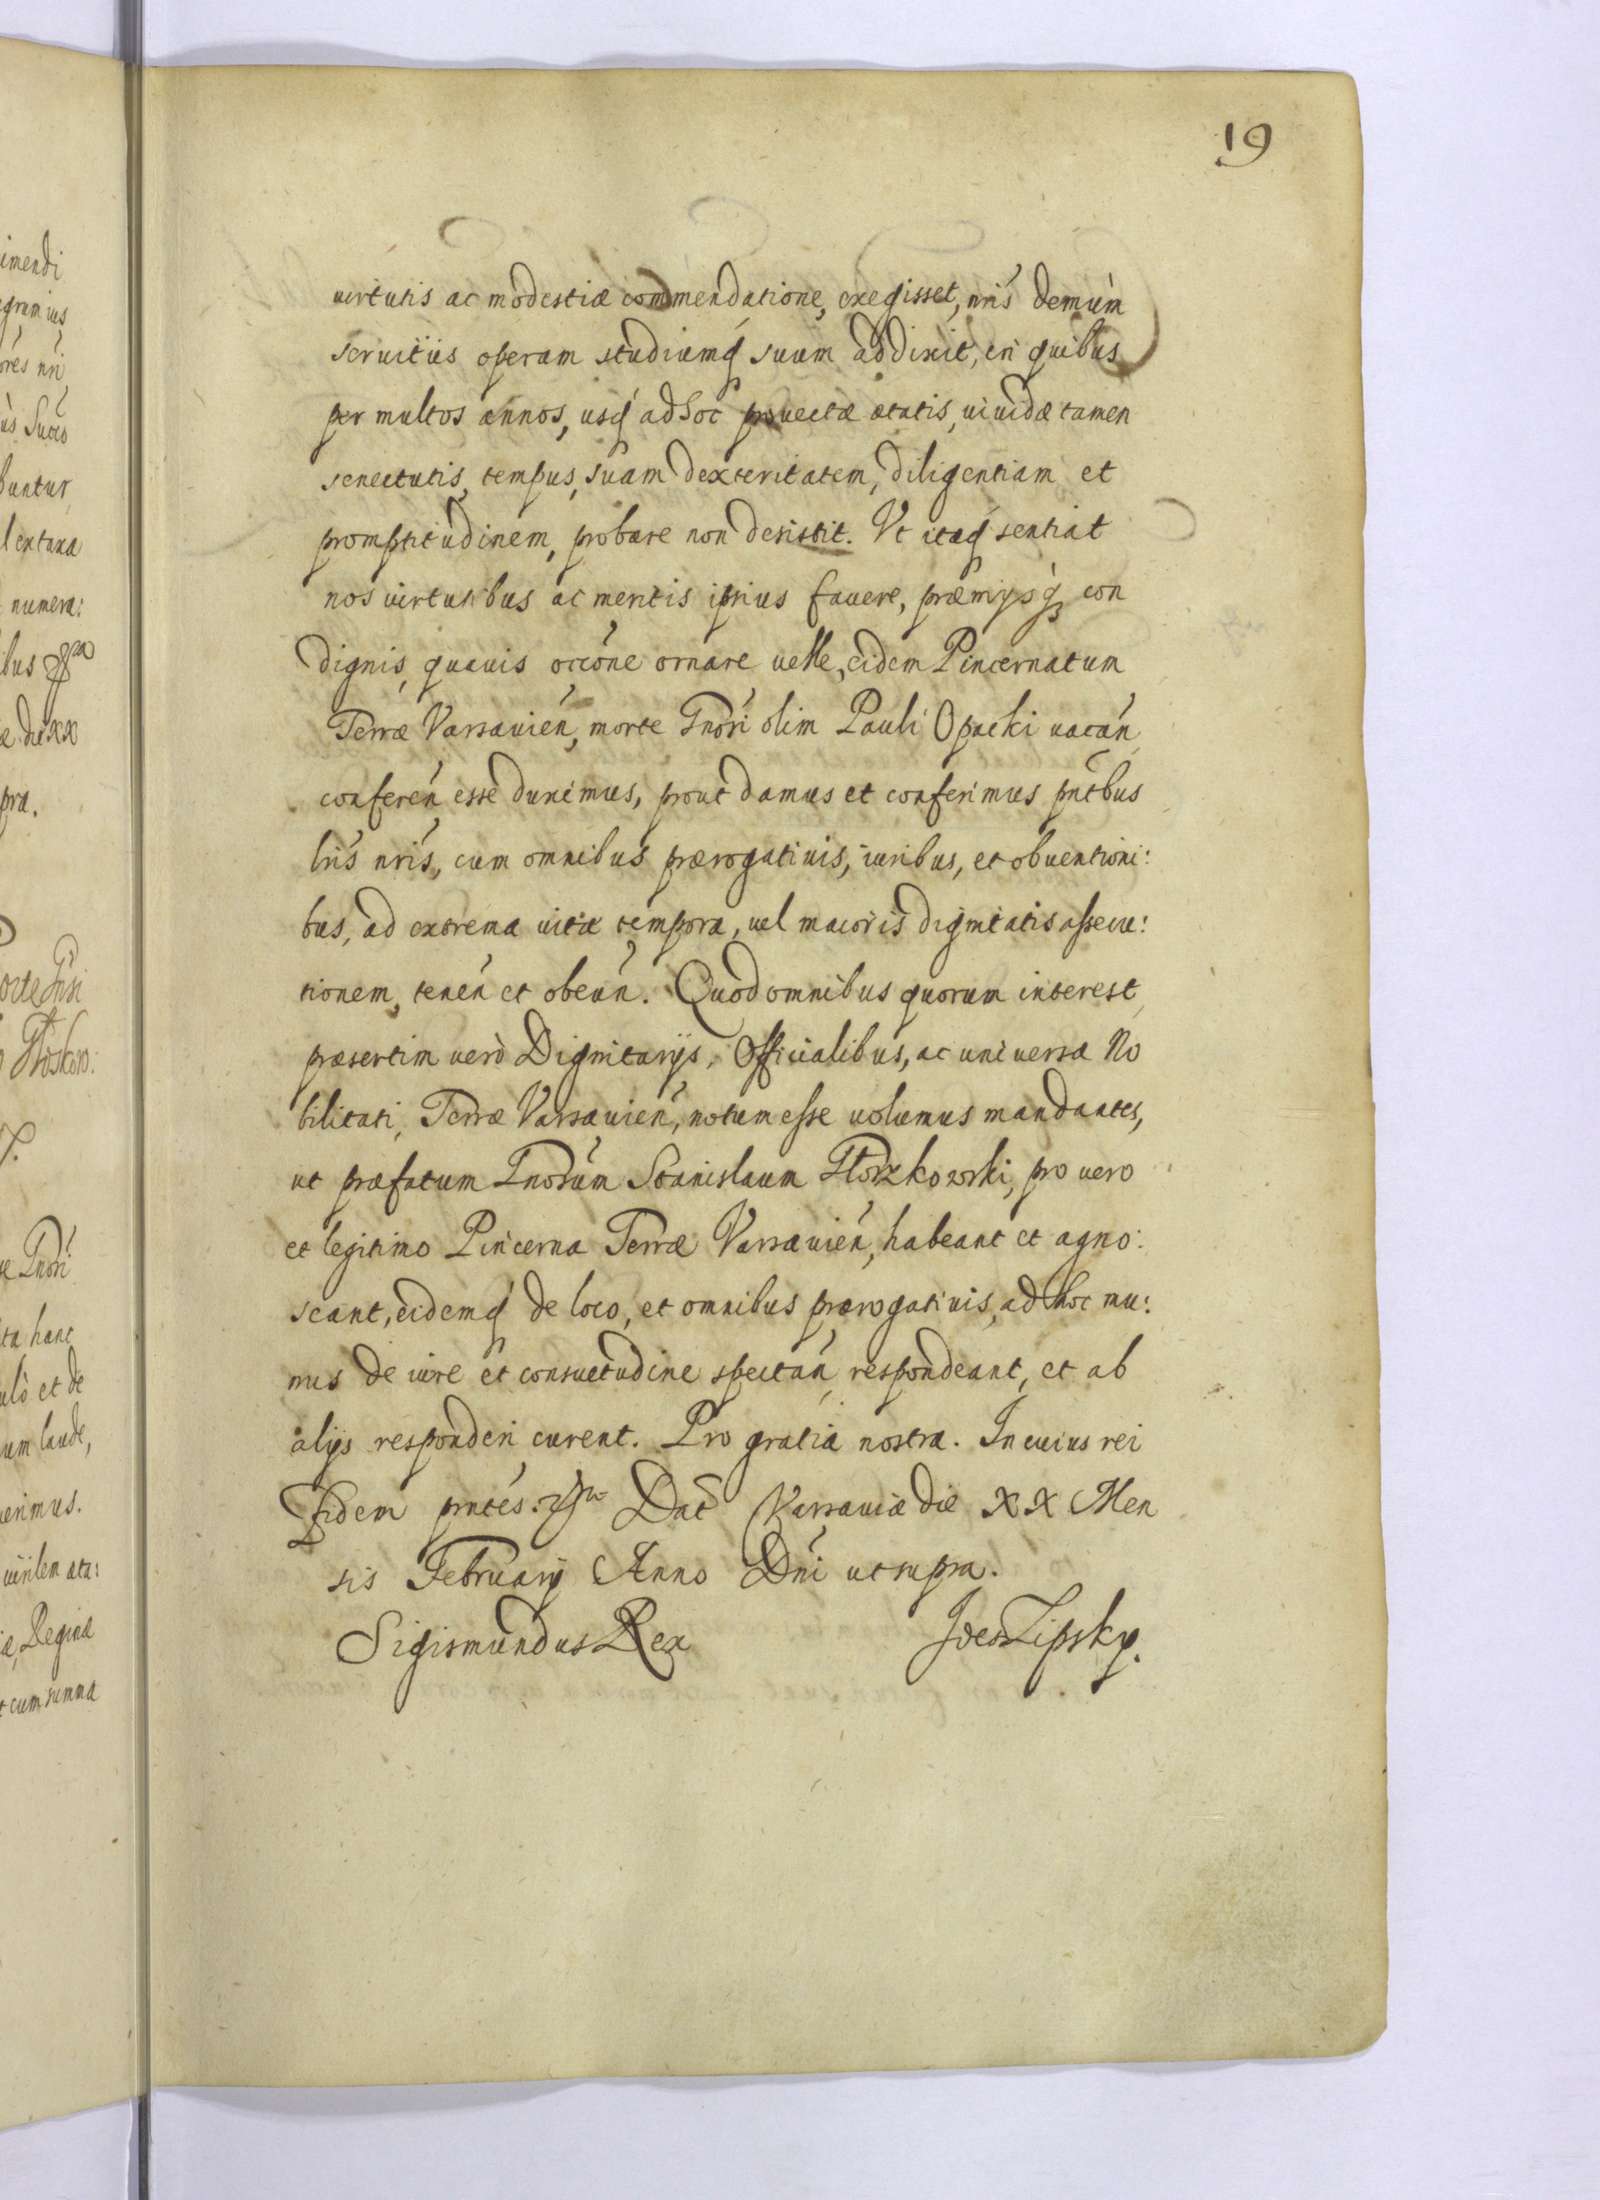 19
virtutis ac modestiæ commendatione, exegisset, nrís demùm
seruitiis operam studiumq́ suum addixit, in quibus
per multos annos, usq́ ad hoc prouectæ ætatis, uiuidæ tamen
senectutis, tempus, suam dexteritatem, diligentiam et
promptitudinem, probare non desistit. Vt itaq́ sentiat
nos uirtutibus ac meritis ipsius fauere, præmijsq́ con
dignis, quauis occône ornare uelle, eidem Pincernatum
Terræ Varsauień, morte Gnôsi olim Pauli Opacki uacań
confereń esse duximus, prout damus et conferimus pñtbus
lrís nrís, cum omnibus prærogatiuis, iuribus, et obuentioni:
bus, ad extrema uitæ tempora, uel maioris dignitatis assecu:
tionem, teneń et obeuń. Quod omnibus quorum interest,
præsertim uerò Dignitarijs, Officialibus, ac uniuersæ No
bilitati, Terræ Varsauień, notum esse uolumus mandantes,
ut præfatum Gnosúm Stanislaum Płoszkowski, pro uero
et legitimo Pincerna Terræ Varsauień, habeant et agno:
scant, eidemq́ de loco, et omnibus prærogatiuis, ad hoc mu:
nus de iure et consuetudine spectań respondeant, et ab
alijs responderi curent. Pro gratia nostra. In cuius rei
fidem pñtés. Dat̃ Varsauiæ die XX Men
sis Februarij Anno Dñi ut supra.
Sigismundus Rex
Joes Lipsky.
imendi
buntur
numera:
ibus
æ die XX
pra.
ta hanc
et de
um laude,
uerimus.
uirilem æta:
Reginæ
cum summa